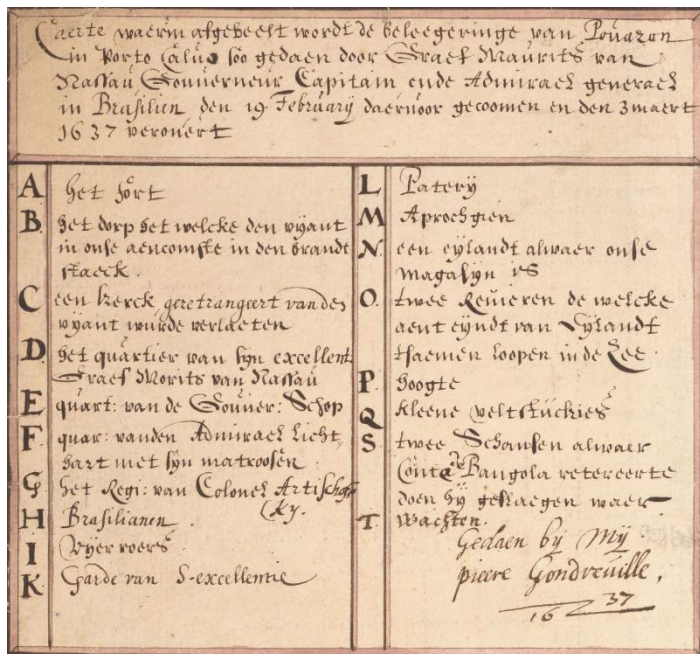 Caerte waerin afgebeelt wordt de beleegeringe van Pouazon
in Porto Caluo soo gedaen door Graef Maurits van
Nassau Gouuerneur Capitain ende Admirael generael
in Brasilien den 19 February daervoor gecoomen en den 3 maert
1637 verouert
A het fort
B het dorp het welcke den vyant
in onse aencomste in den brandt
staeck.
C een kerck geretrangeert vanden
vyant wurde verlaeten
D het quartier van syn excellent:
Graef Morits van Nassau
E quart: van de Gouuer: Schop
F quar: vanden Admirael Licht,
hart met syn matroosen
G het Regi: van Colonel Artischofs
ky.
H Brasilianen
I Vyer roers
K Garde van S-excellentie
L Batery
M Aprochgien
N. een eylandt alwaer onse
magasyn is
O. twee Reuieren de welcke
aent eyndt van Eylandt
tsaemen loopen in de Zee
P. hoogte
Q kleene veltstuckies
S twee Schansen alwaer
Conte de Bangola retereerte
doen hy geslaegen waer
T. Wachten.
Gedaen by My
pieere Gondreuille,
1637